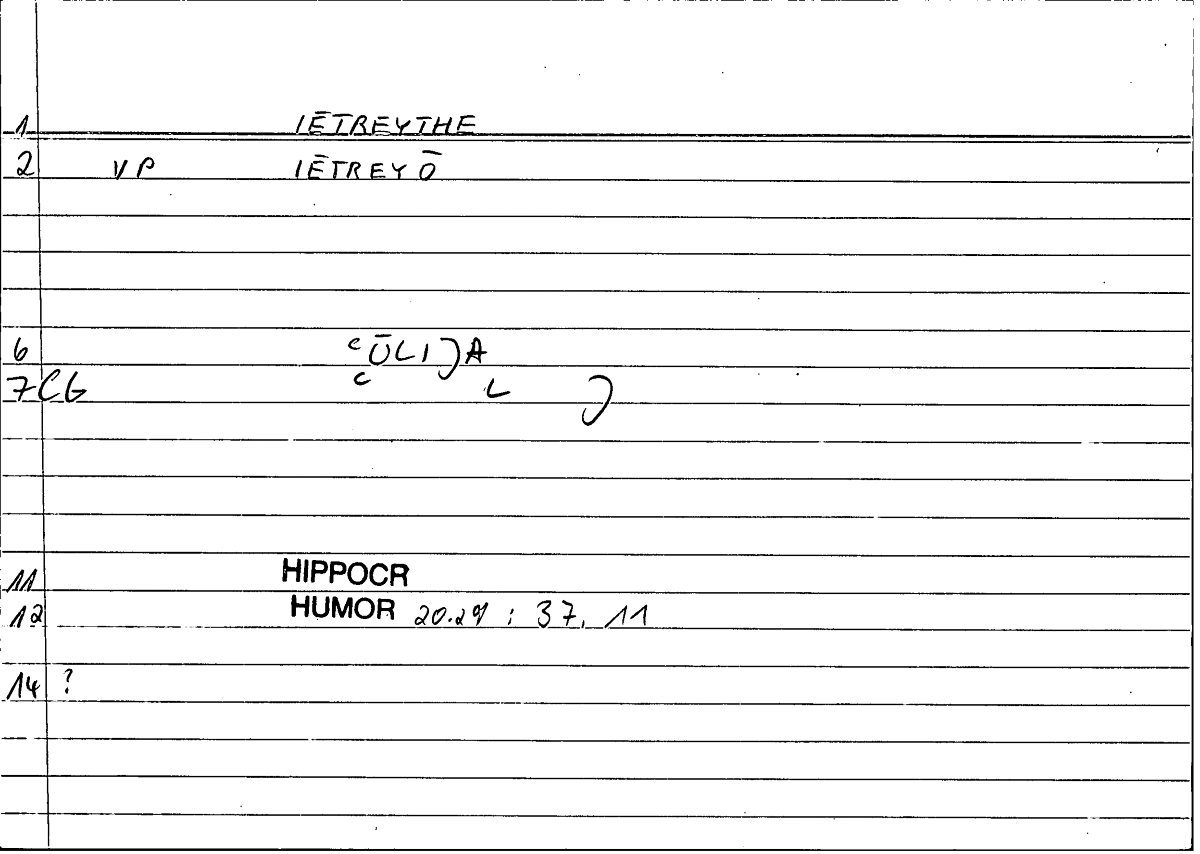 1 IĒTREYTHE
2 VP IĒTREYŌ
6
7 CG
11 HIPPOCR
12 HUMOR 20.29 : 37, 11
14 ?